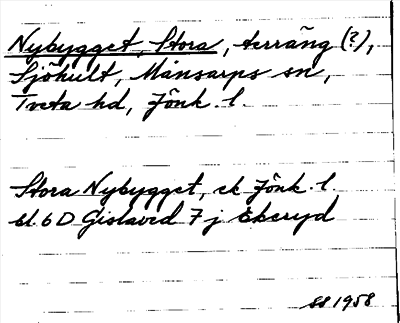 Nybygget, Stora, terräng (?),
Sjöhult, Månsarps sn,
Tveta hd, Jönk. l.
Stora Nybygget, ek Jönk. l.
bl. 6 D Gislaved 7 j Ekeryd
1958